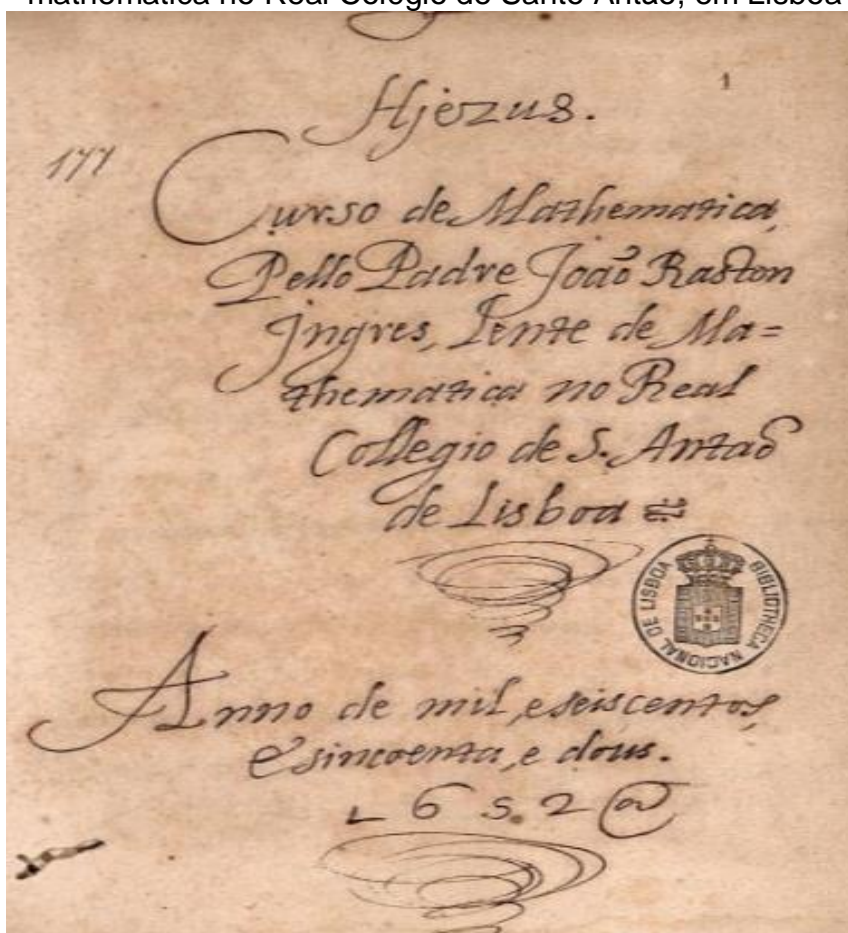 mathematica no Real Colégio de Santo Antão, em Lisboa
1
Hjezus.
177
Curso de Mathematica,
Pello Padre João Raston
Jngres, Lente de Ma=
thematica no Real
Collegio de S. Antaõ
de Lisboa
BIBLIOTHECA NACIONAL DE LISBOA
Anno de mil, e seiscentos,
e sincoenta, e dous.
1652